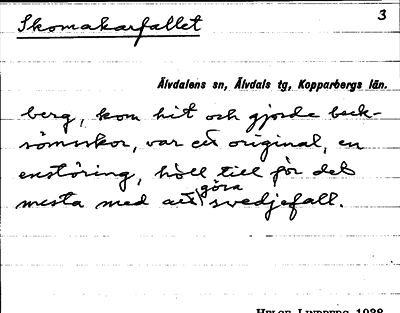 3
Skomakarfallet
Älvdalens sn, Älvdals tg, Kopparbergs län.
berg, kom hit och gjorde beck-
sömsskor, var ett original, en
enstöring, höll till för det
mesta med att göra svedjefall.
HELGE LINDBERG 1938